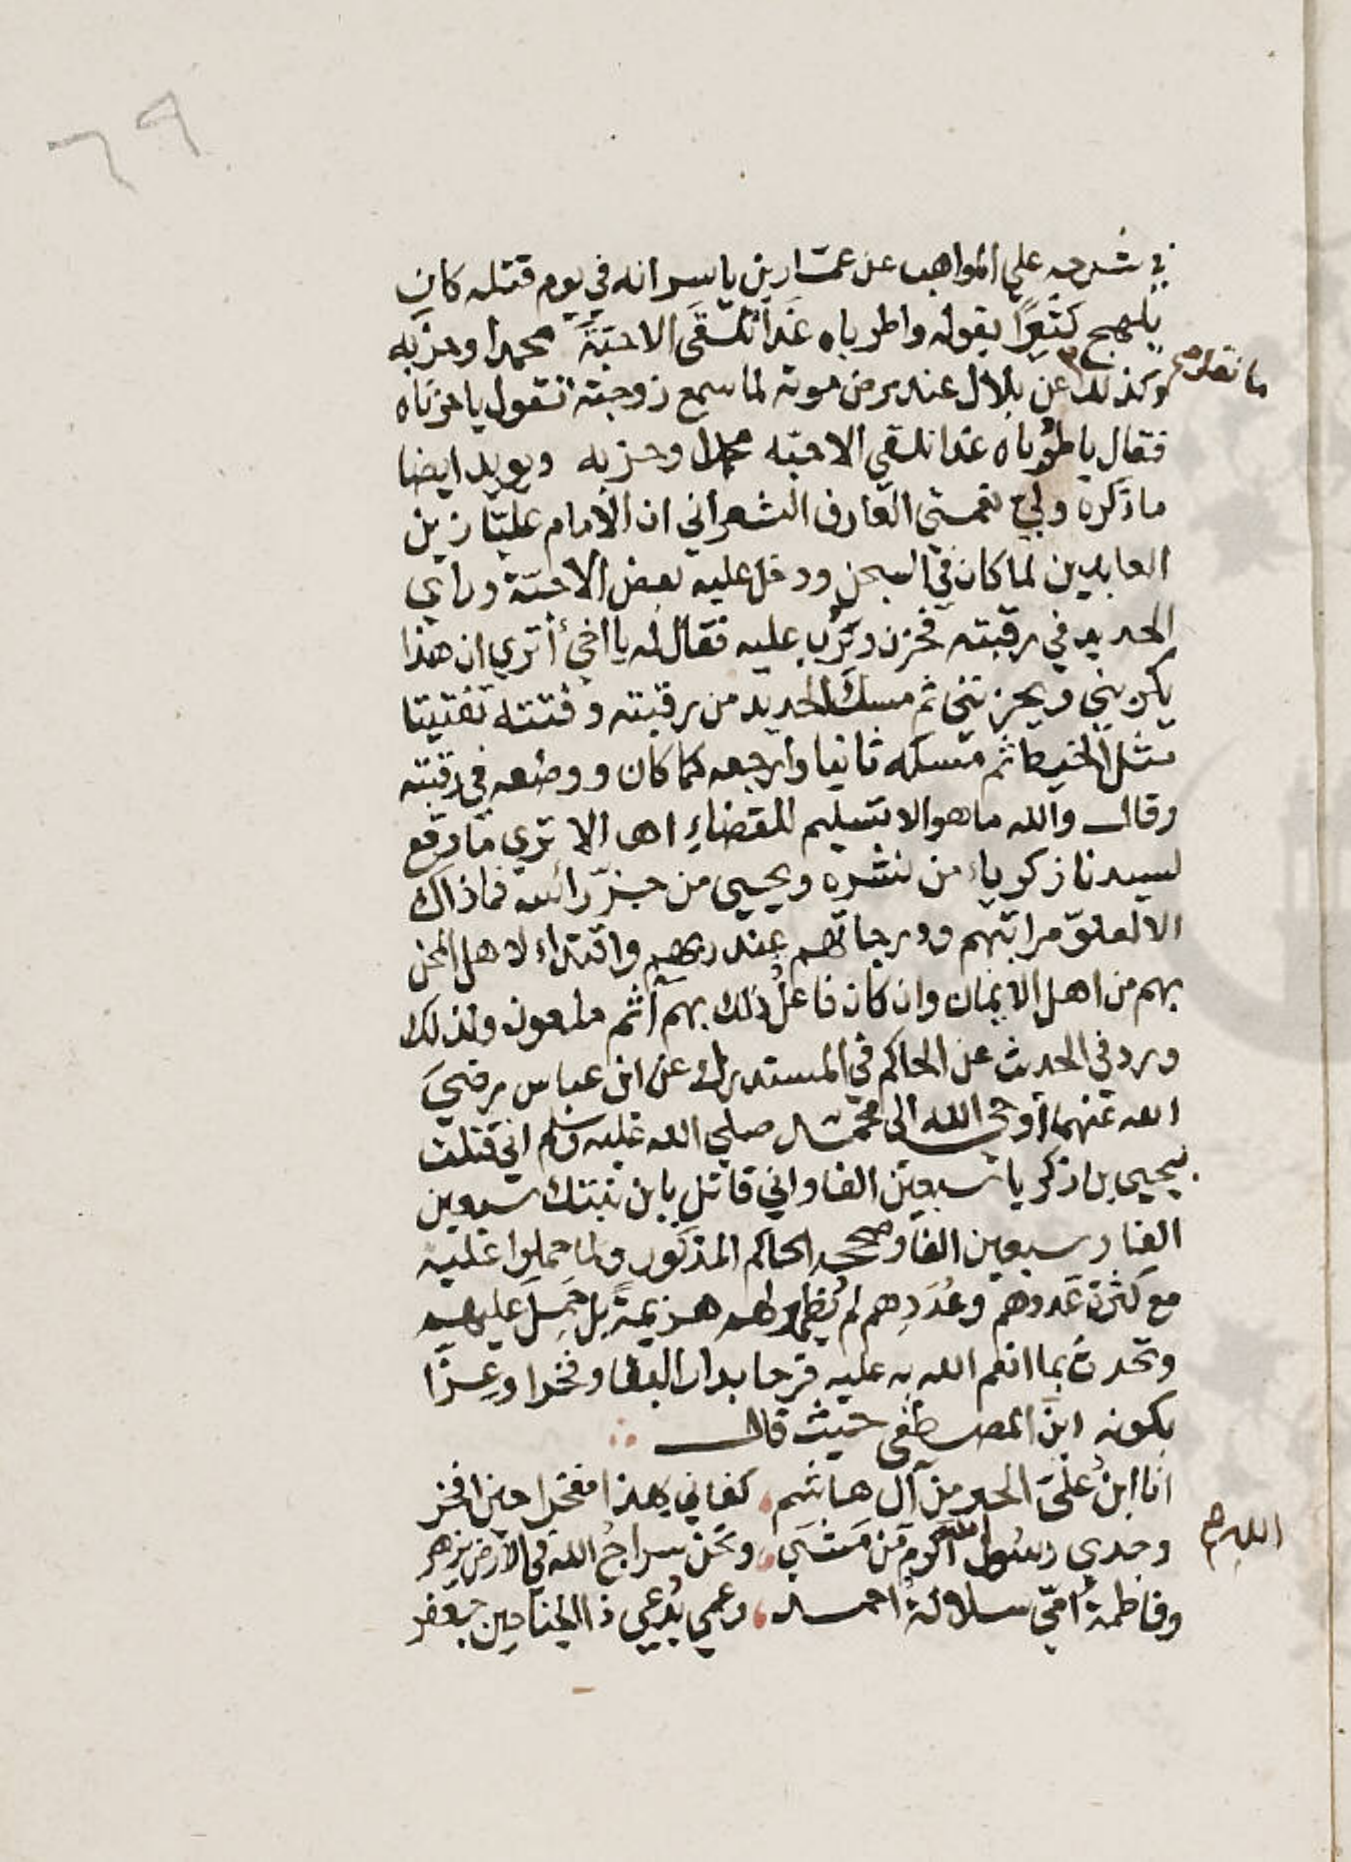 ٦٩
في شرحه علي المواهب عن عمّار بن ياسر انه في يوم قتله كان
يلهج كثيرًا بقوله واطرباه غدًا نلقى الاحبّة محمدا وحزبه
ما نقل صح
وكذلك عن بلال عند مرض موته لما سمع زوجته تقول ياحزناه
فقال ياطرباه غدا نلقي الاحبّه محمدا وحزبه ويويد ايضا
ماذكره ولي نعمتي العارف الشعراني ان الامام عليّا زين
العابدين لما كان في السجن ودخل عليه بعض الاحبّة وراي
الحديد في رقبته فحزن وكرُب عليه فقال له يا اخي أتري ان هذا
يكربني ويحزنني ثم مسك الحديد من رقبته وفتته تفتيتا
مثل الخيط ثم مسكه ثانيا وارجعه كما كان ووضعه في رقبته
وقال والله ما هو الا تسليم للقضاءِ اهى الا تري ما وقع
لسيدنا زكرياء من نشره ويحيي من جزّ رأسه فماذاك
الا لعلوّ مراتبهم ودرجاتهم عند ربهم واقتداء لاهل المحن
بهم من اهل الايمان وان كان فاعلُ ذلك بهم آثم ملعون ولذلك
ورد في الحديث عن الحاكم في المستدرك عن ابن عباس رضيَ
الله عنهما أوحى الله الى محمّد صلي الله عليه وسلم اني قتلت
بيحيي بن زكريا سبعين الفا واني قاتل بابن بنتك سبعين
الفا وسبعين الفا وصححه الحاكم المذكور ولما حملوا عليه
مع كثرة عَددهم وعُدَدِهم لم يُظهر لهم هزيمةً بل حَمِلَ عليهم
وتحدثُ بما انعم الله به عليه فرحا بدار البقا وفخرا وعزًّا
بكونه ابن المصطفى حيث قال
انا ابنُ عليّ الحبر من آل هاشم كفاني بهذا مفخرا حين افخر
وجدي رسول الله اكرم مَن مَشَي ونحن سراجُ الله في الارض يزهر
الله صح
وفاطمةُ امّي سلالةُ احمد وعمي يُدعي ذا الجناحين جعفر